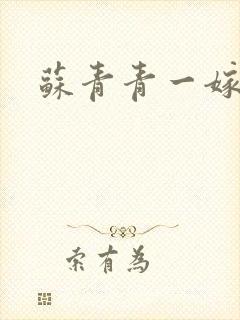 蘇青青一嫁
索有為